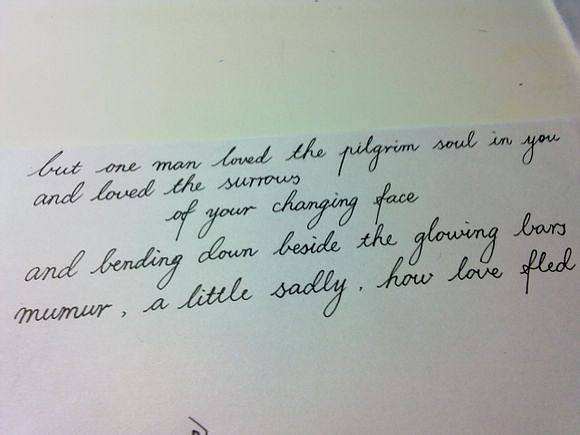 but one man loved the pilgrim soul in you
and loved the surrows
of your changing face
and bending down beside the glowing bars
mumur, a little sadly, how love fled